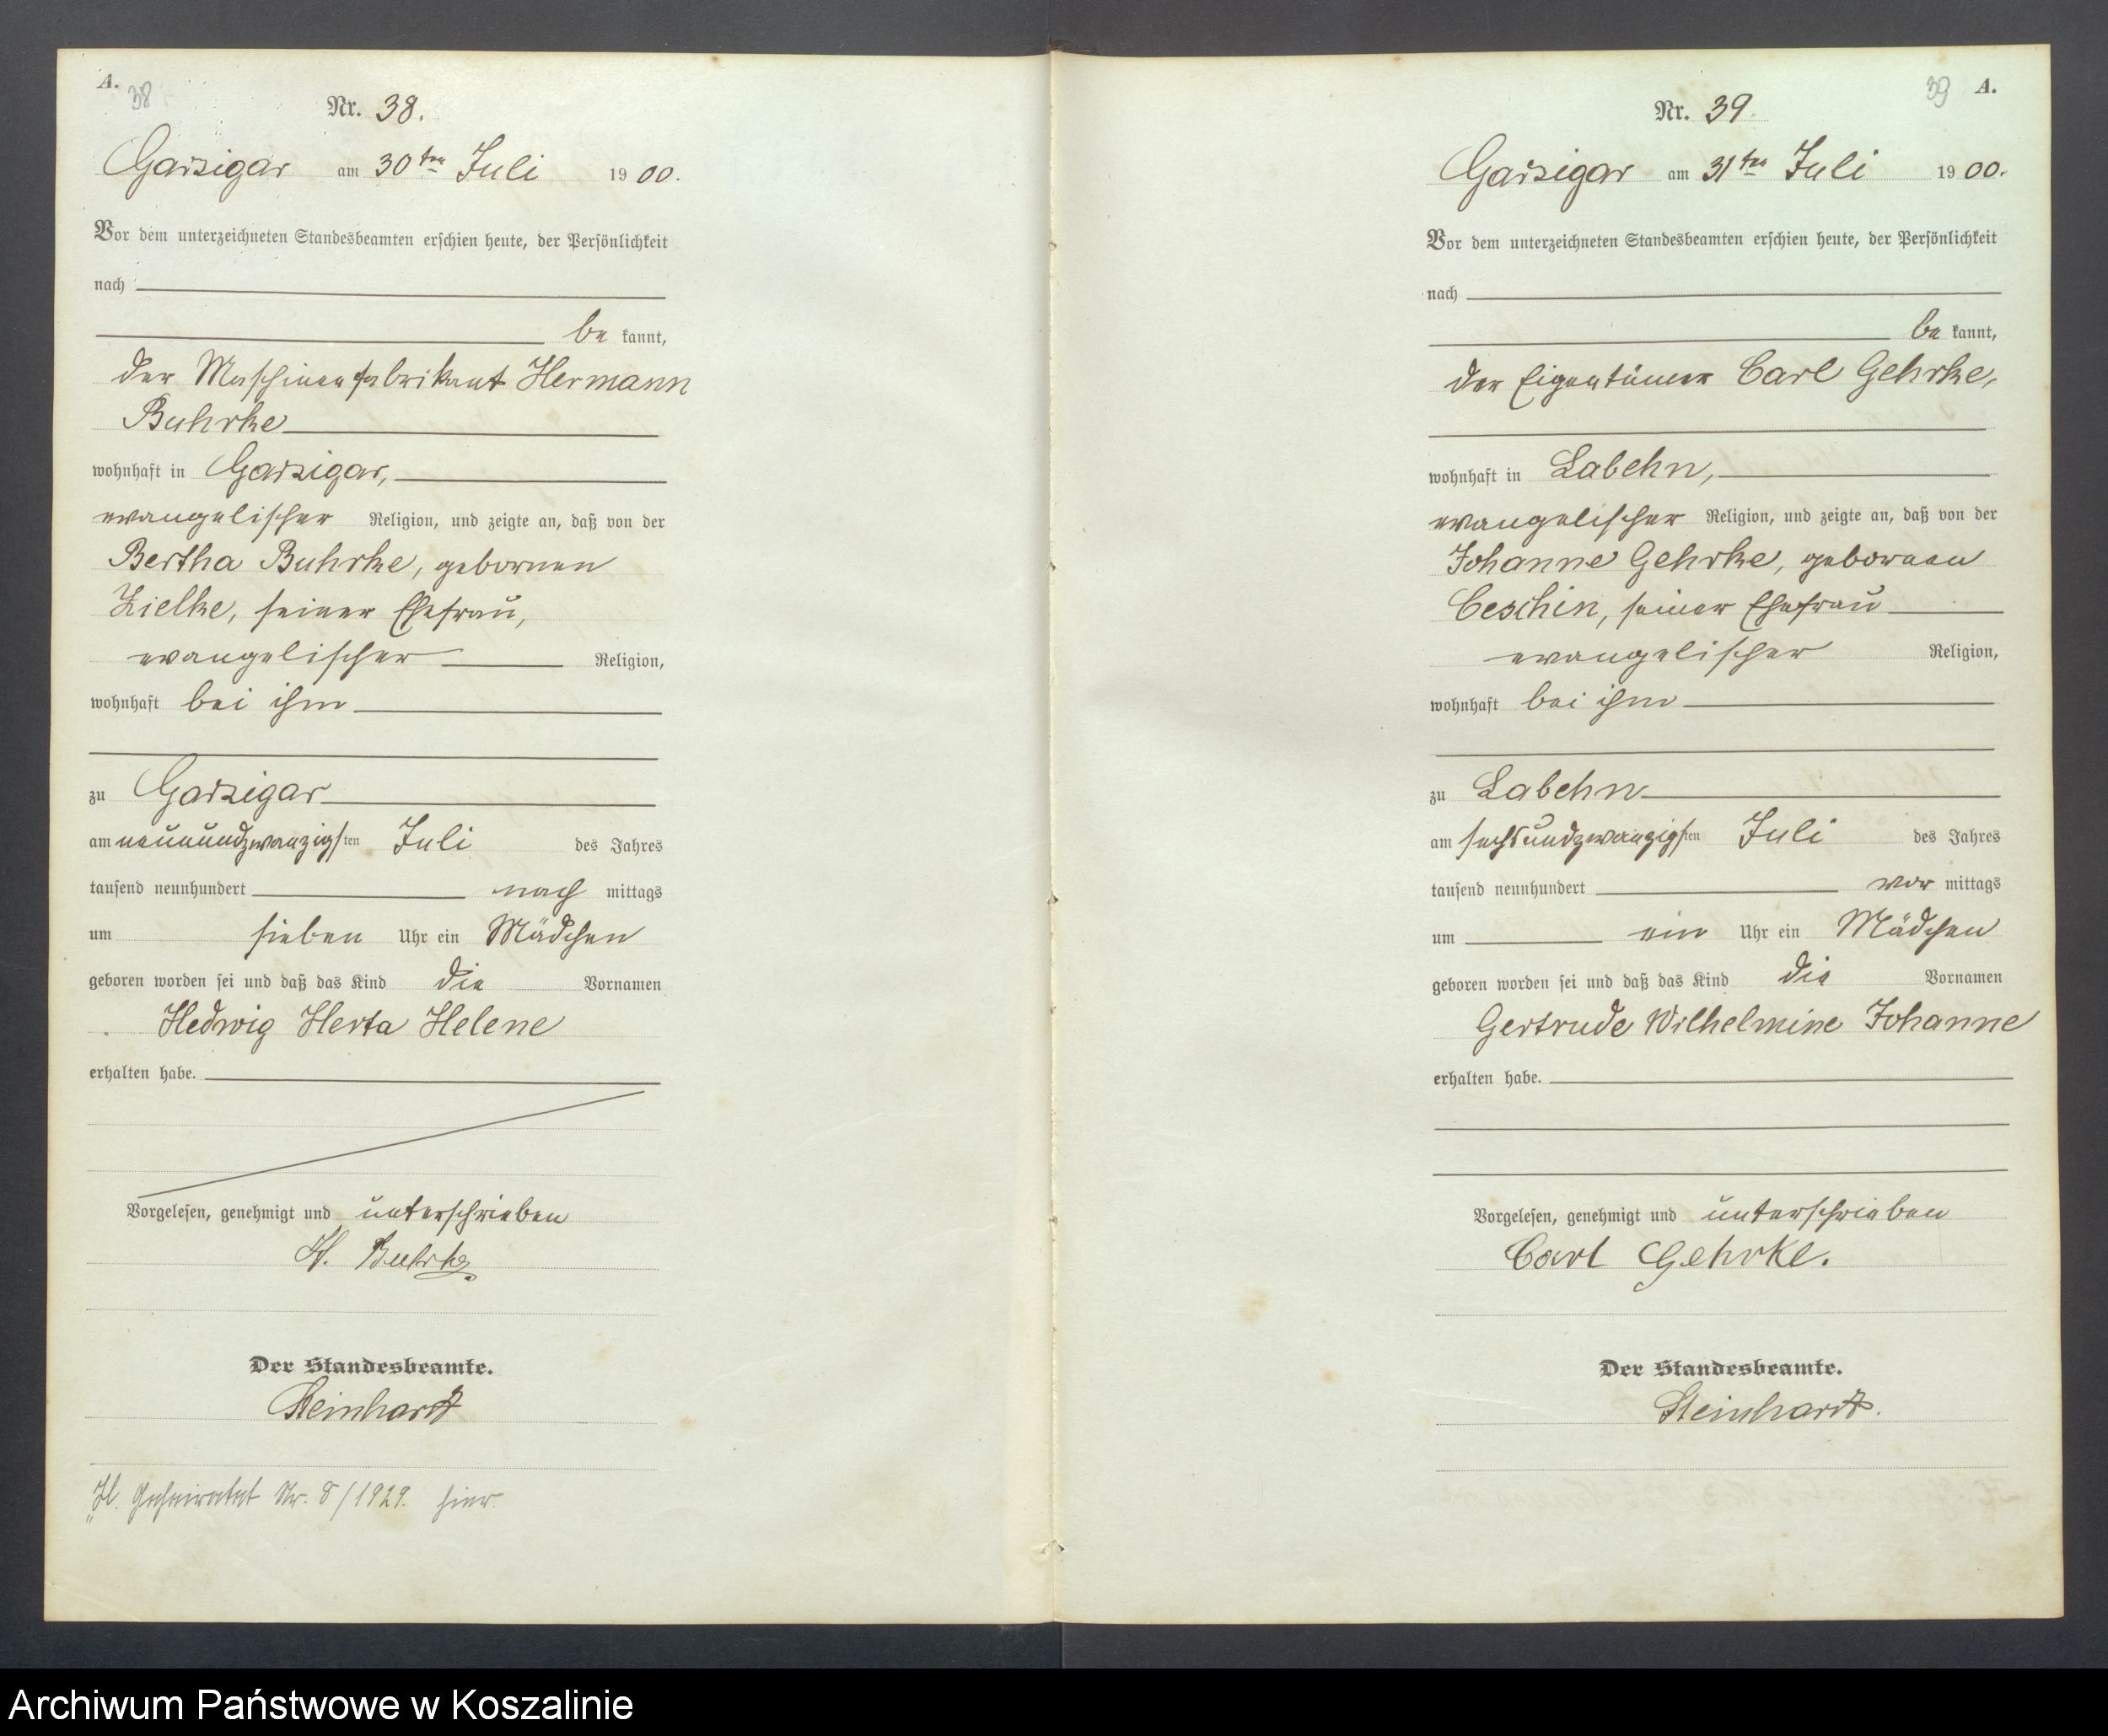 A.
38
Nr. 38.
Garzigar am 30ten Juli 1900.
Vor dem unterzeichneten Standesbeamten erschien heute, der Persönlichkeit
nach
be kannt,
der Maschinenfabrikant Hermann
Buhrke
wohnhaft in Garzigar,
evangelischer Religion, und zeigte an, daß von der
Bertha Buhrke, gebornen
Zielke, seiner Ehefrau,
evangelischer Religion,
wohnhaft bei ihm
zu Garzigar
am neunundzwanzigsten Juli des Jahres
tausend neunhundert nach mittags
um sieben Uhr ein Mädchen
geboren worden sei und daß das Kind die Vornamen
Hedwig Herta Helene
erhalten habe.
Vorgelesen, genehmigt und unterschrieben
H. Buhrke
Der Standesbeamte.
Steinhardt
H. Geheiratet Nr. 8/1929. hier.
39 A.
Nr. 39.
Garzigar am 31ten Juli 1900.
Vor dem unterzeichneten Standesbeamten erschien heute, der Persönlichkeit
nach
be kannt,
der Eigentümer Carl Gehrke,
wohnhaft in Labehn,
evangelischer Religion, und zeigte an, daß von der
Johanne Gehrke, gebornen
Ceschin, seiner Ehefrau
evangelischer Religion,
wohnhaft bei ihm
zu Labehn
am sechsundzwanzigsten Juli des Jahres
tausend neunhundert vor mittags
um ein Uhr ein Mädchen
geboren worden sei und daß das Kind die Vornamen
Gertrude Wilhelmine Johanne
erhalten habe.
Vorgelesen, genehmigt und unterschrieben
Carl Gehrke.
Der Standesbeamte.
Steinhardt.
Archiwum Państwowe w Koszalinie